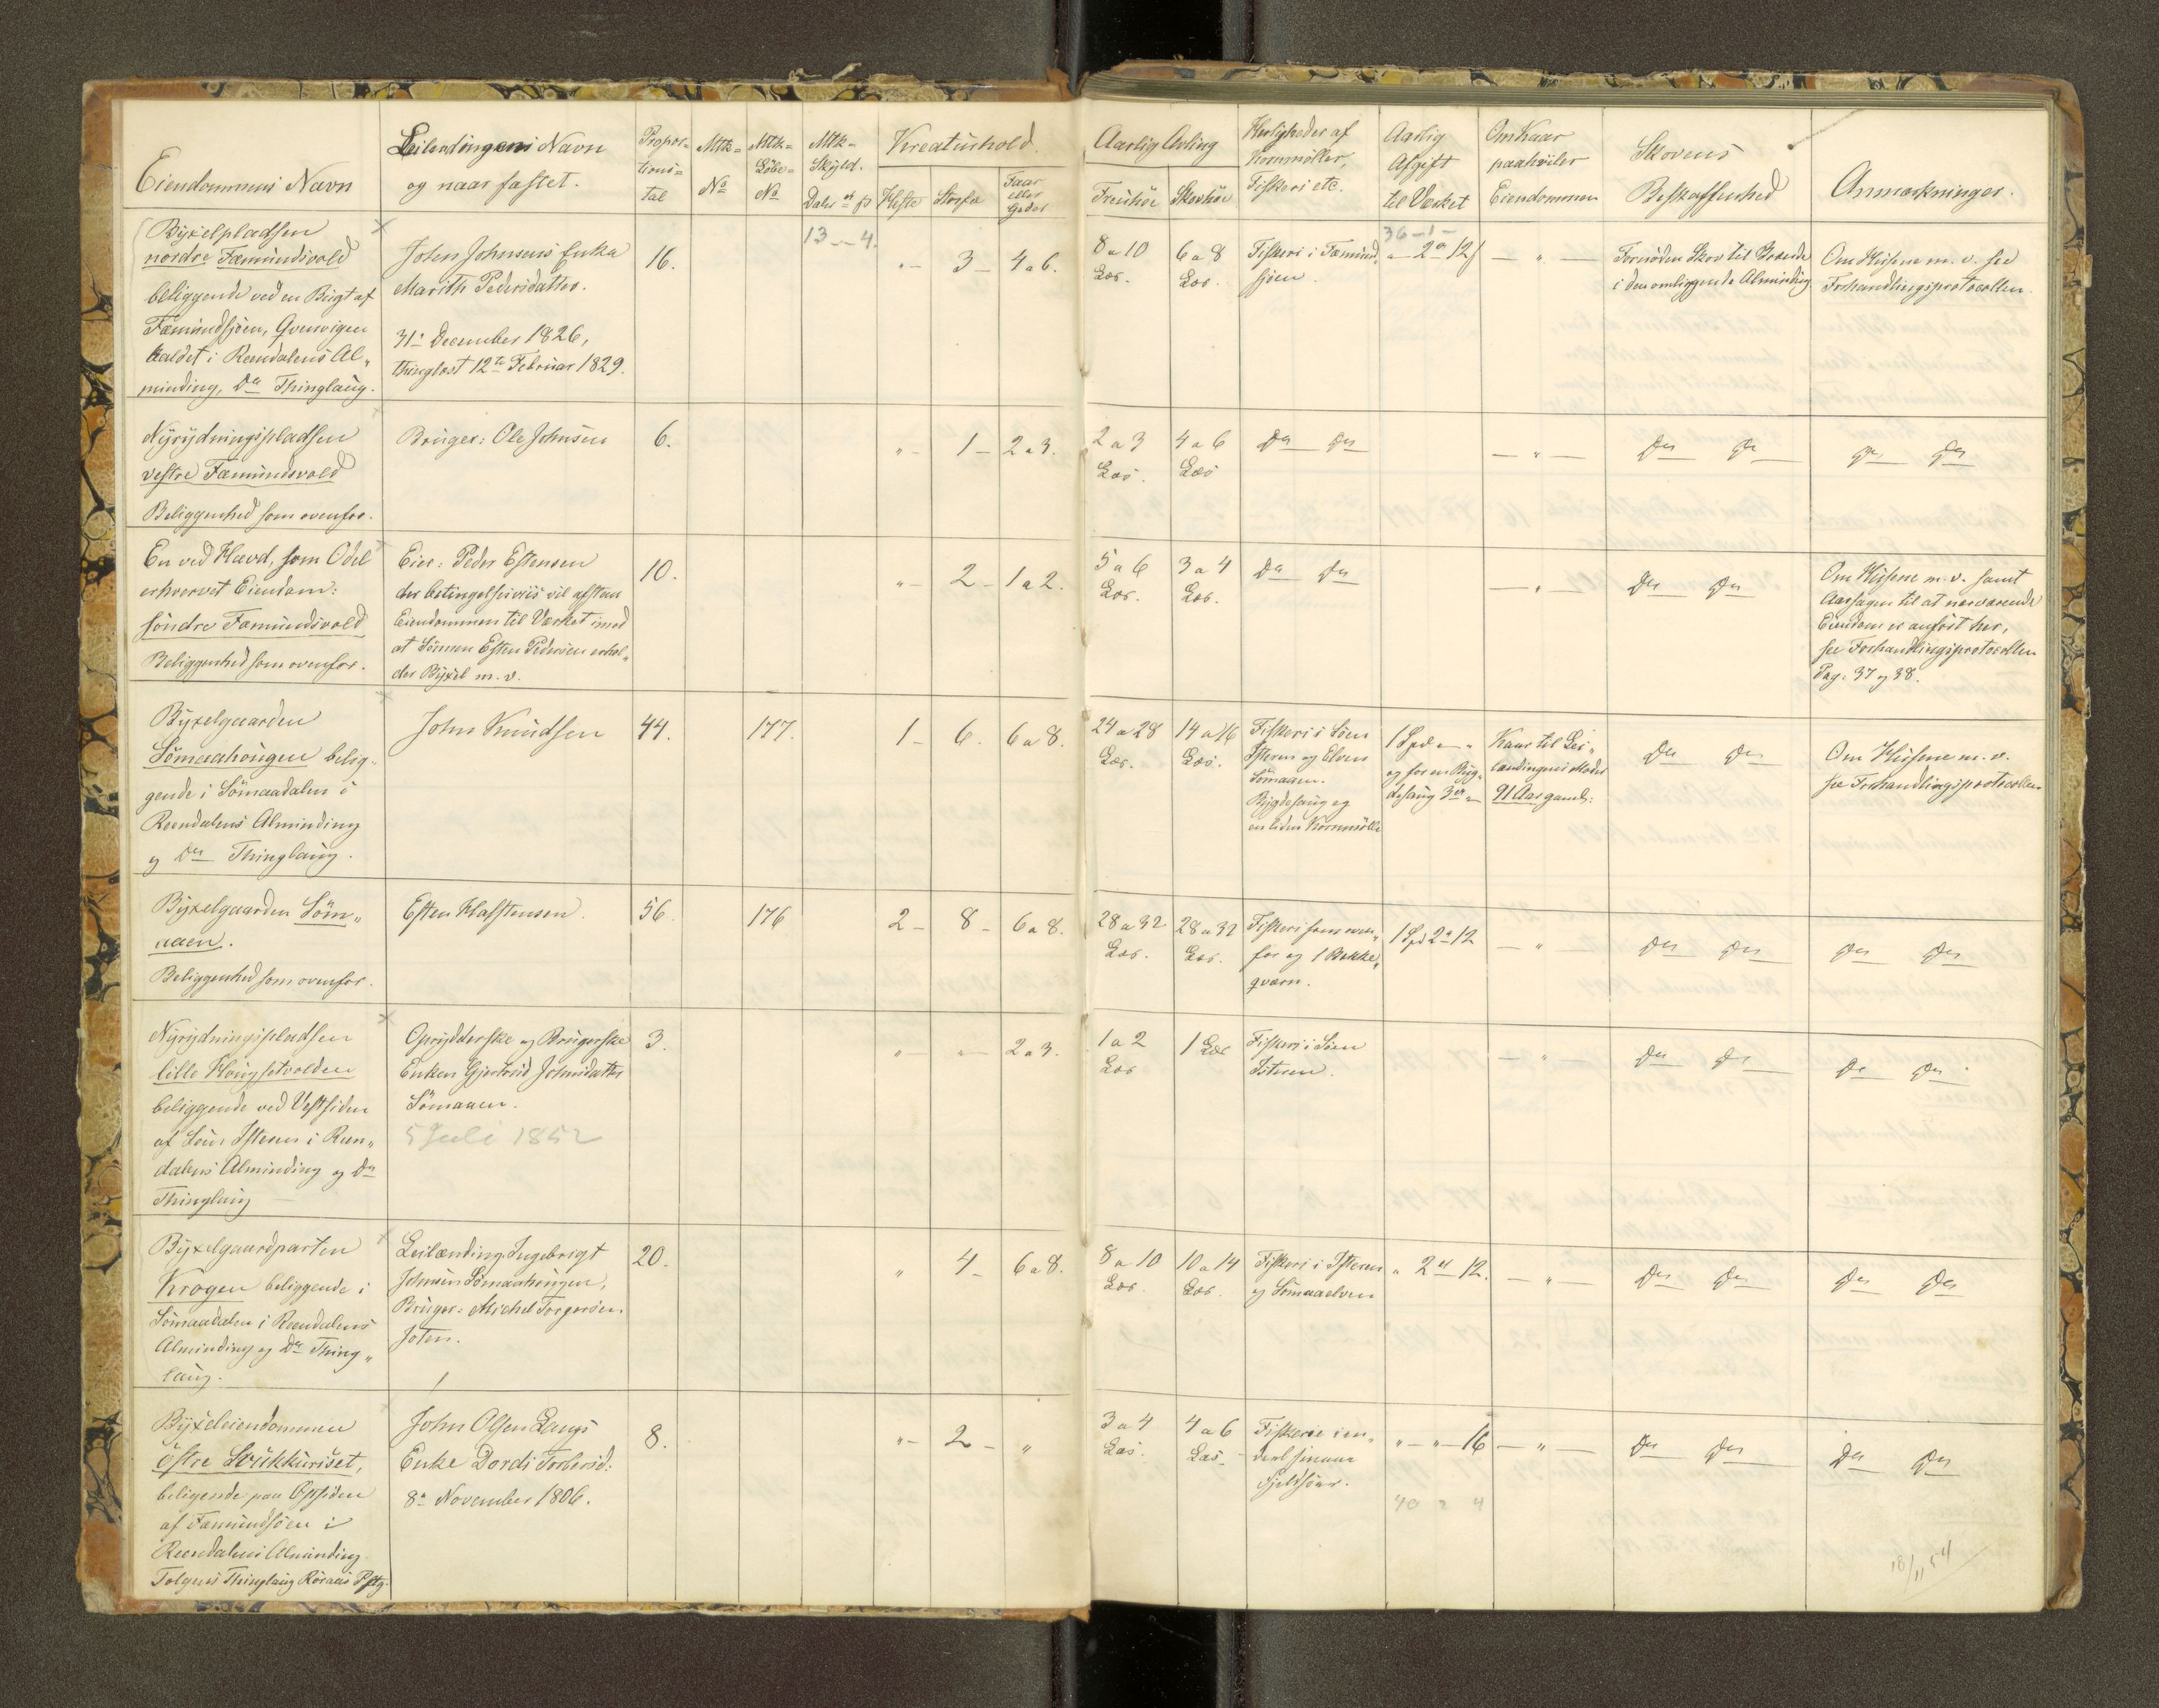 Eiendommens Navn
Leilendingens Navn
og naar fæstet.
Propor-
tions-
tal
Mtk-
No
Mtk-
Löbe-
No
Mtk-
Skyld.
Daler ort ß
Kreaturhold.
Heste
Storfæ
Faar
eller
Geder
Aarlig Avling
Fröehöe
Skovhöe
Herligheder af
Kornmöller,
Fiskeri etc.
Aarlig
Afgift
til Værket
Om Kaar
paahviler
Eiendommen
Skovens
Beskaffenhed
Anmærkninger.
Byxelpladsen
nordre Fæmundsvold
beliggende ved en Bugt af
Fæmundsjöen, Qvenvigen
kaldet i Rendalens Al„
minding, Do Thinglaug.
John Johnsens Enke
Marith Pedersdatter.
31te December 1826,
thinglæst 12te Februar 1829.
16.
13 - - 4.
" - 3 - 4 a 6.
8 a 10
Læs.
6 a 8
Læs.
Fiskeri i Fæmund„
sjöen.
36 - 1 -
" - 2 ort 12 ß
— " —
Fornöden Skov til Brænde
i den omliggende Alminding
Om Husene m. v. see
Forhandlingsprotocollen.
Nyrydningspladsen
vestre Fæmundsvold
Beliggenhed som ovenfor.
Bruger: Ole Johnsen
6.
" - 1 - 2 a 3.
2 a 3
Læs.
4 a 6
Læs
Do Do
— " —
Do Do
Do Do
En ved Hævd, som Odel
erhvervet Eiendom:
söndre Fæmundsvold
Beliggenhed som ovenfor.
Eier: Peder Estensen
der betingelsesviis vil afstaa
Eiendommen til Værket imod
at Sönnen Esten Pedersen erhol„
der Byxel m. v.
10.
" - 2 - 1 a 2.
5 a 6
Læs.
3 a 4
Læs.
Do Do
— " —
Do Do
Om Husene m. v. samt
Aarsagen til at nærværende
Eiendom er anfört her,
see Forhandlingsprotocollen
Pag: 37 og 38.
Byxelgaarden
Sömaahougen belig„
gende i Sömaadalen i
Rendalens Alminding
og Do Thinglaug.
John Knudsen
44.
177.
1 - 6. 6 a 8.
24 a 28
Læs.
14 a 16
Læs.
Fiskeri i Söen
Isteren og Elven
Sömaaen.
Bygdesaug og
en liden Kornmölle
1 Spd " "
og for en Byg„
desaug 3 ort "
Kaar til Lei„
lændingens Moder
91 Aar gaml:
Do Do
Om Husene m. v.
see Forhandlingsprotocollen
Byxelgaarden Söm„
aaen.
Beliggenhed som ovenfor.
Esten Halstensen.
56.
176
2 - 8 - 6 a 8.
28 a 32
Læs.
28 a 32
Læs.
Fiskeri som oven„
for og 1 Bække„
qværn.
1 Spd 2 ort 12
— "
Do Do
Do Do
Nyrydningspladsen
lille Hougsetvolden
beliggende ved Vestsiden
af Söen Isteren i Ren„
dalens Alminding og Do
Thinglaug
Oprydderske og Brugerske
Enken Gjertrud Johnsdatter
Sömaaen.
5 Juli 1852
3.
" " - 2 a 3.
1 a 2
Læs
1 Læs
Fiskeri i Söen
Isteren.
— " —
Do Do
Do Do
Byxelgaardparten
Krogen beliggende i
Sömaadalen i Rendalens
Alminding og Do Thing„
laug.
Leilænding Ingebrigt
Johnsen Sömaahougen,
Bruger: Michel Torgersen
Joten.
20.
" 4 - 6 a 8.
8 a 10
Læs.
10 a 14
Læs.
Fiskeri i Isteren
og Sömaaelven
" 2 ort 12.
— " —
Do Do
Do Do
Byxeleiendommen
östre Svukkuriset,
beligende paa Östsiden
af Fæmundsöen i
Rendalens Alminding
Tolgens Thinglaug Röraas Pstg.
John Olsen Langs
Enke Dordi Torbersd:
8de November 1806.
8.
" - 2 - "
3 a 4
Læs.
4 a 6
Læs
Fiskerie i en„
deel smaae
Fjeldsöer.
" - " - 16
— " —
Do Do
Do Do
40 2 4
18/11 54